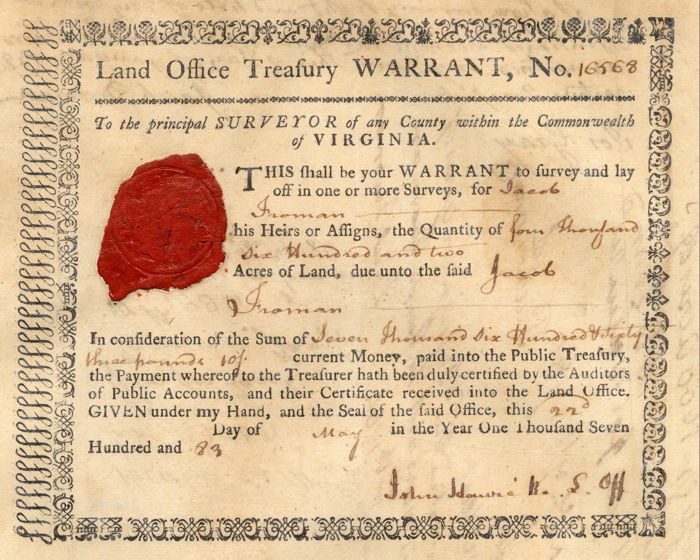 Land Office Treasury WARRANT, No. 16568
To the principal SURVEYOR of any County within the Commonwealth
of VIRGINIA.
THIS shall be your WARRANT to survey and lay
off in one or more Surveys, for Jacob
Froman
his Heirs or Assigns, the Quantity of four thousand
six Hundred and two
Acres of Land, due unto the said Jacob
Froman
In consideration of the Sum of Seven Thousand six Hundred & Ninety
three pounds 10/ current Money, paid into the Public Treasury,
the Payment whereof to the Treasurer hath been duly certified by the Auditors
of Public Accounts, and their Certificate received into the Land Office.
GIVEN under my Hand, and the Seal of the said Office, this 22d
Day of May in the Year One Thousand Seven
Hundred and 83
John Harvie R. L. Off